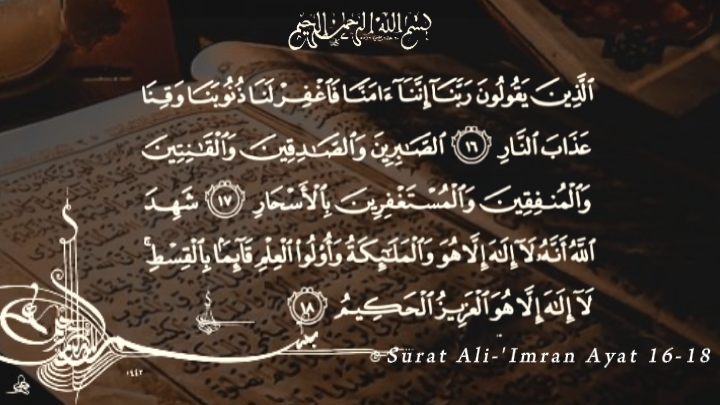 بسم الله الرحمن الرحيم
ٱلَّذِينَ يَقُولُونَ رَبَّنَآ إِنَّنَآ ءَامَنَّا فَٱغْفِرْ لَنَا ذُنُوبَنَا وَقِنَا
عَذَابَ ٱلنَّارِ ١٦ ٱلصَّـٰبِرِينَ وَٱلصَّـٰدِقِينَ وَٱلْقَـٰنِتِينَ
وَٱلْمُنفِقِينَ وَٱلْمُسْتَغْفِرِينَ بِٱلْأَسْحَارِ ١٧ شَهِدَ
ٱللَّهُ أَنَّهُۥ لَآ إِلَـٰهَ إِلَّا هُوَ وَٱلْمَلَـٰٓئِكَةُ وَأُو۟لُوا۟ ٱلْعِلْمِ قَآئِمًۢا بِٱلْقِسْطِ ۚ
لَآ إِلَـٰهَ إِلَّا هُوَ ٱلْعَزِيزُ ٱلْحَكِيمُ ١٨
Surat Ali-'Imran Ayat 16-18
١٤٤٢